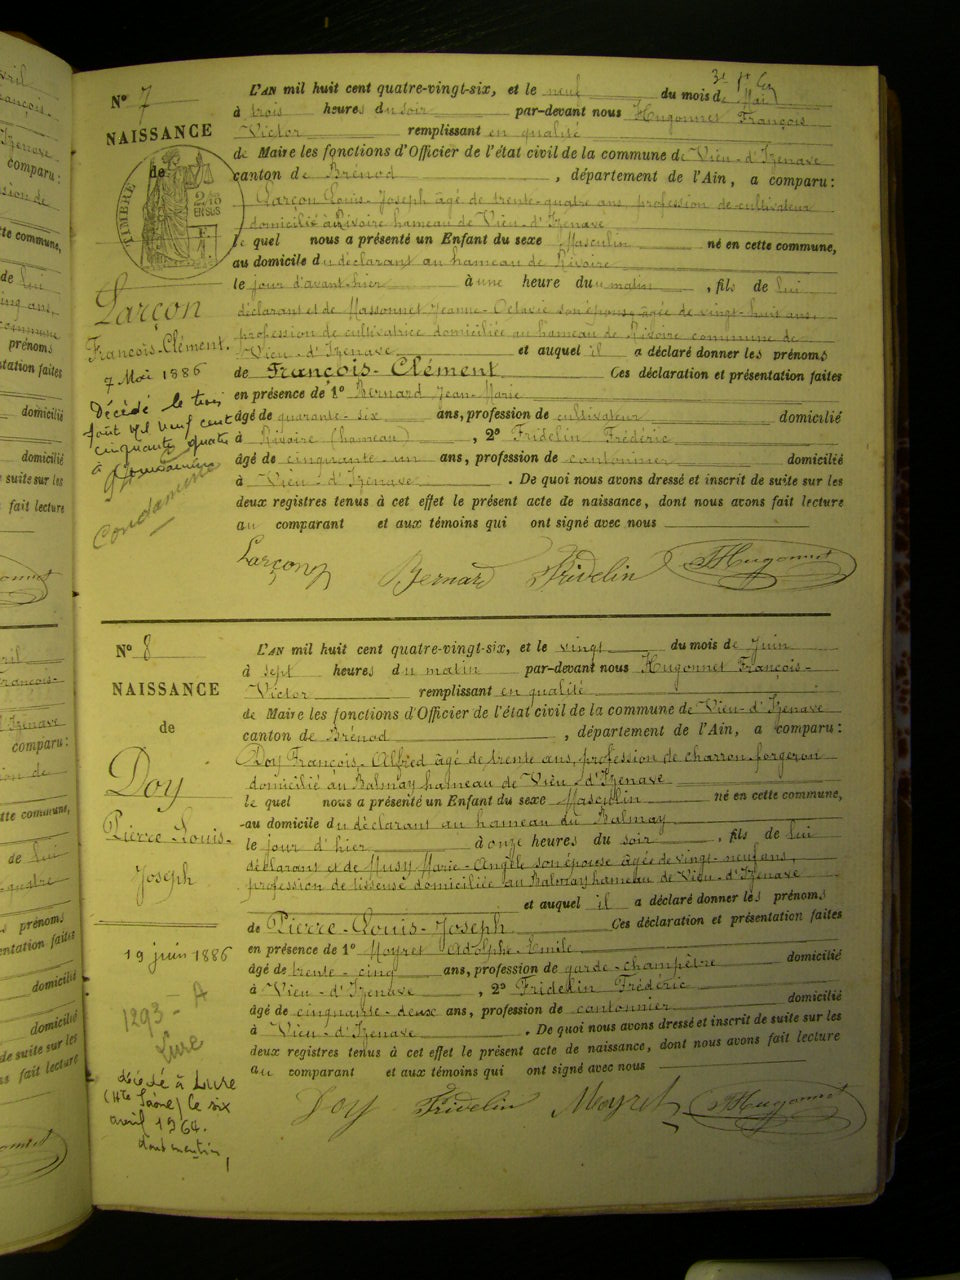 3e
Nº 7
L'AN mil huit cent quatre-vingt-six, et le neuf du mois de Mai
à trois heures du soir par-devant nous Hugonnet François
NAISSANCE
Victor remplissant en qualité
de
de Maire les fonctions d'Officier de l'état civil de la commune de Vieu-d'Izenave
canton de Brénod , département de l'Ain, a comparu :
TIMBRE
2/10
EN SUS
Larçon Louis-Joseph âgé de trente-quatre ans, profession de cultivateur
domicilié à Rivoire hameau de Vieu-d'Izenave
le quel nous a présenté un Enfant du sexe Masculin né en cette commune,
au domicile du déclarant au hameau de Rivoire
le jour d'avant-hier à une heure du matin , fils de lui
Larçon
déclarant et de Massonnet Jeanne-Octavie son épouse âgée de vingt-huit ans,
profession de cultivatrice domiciliée au hameau de Rivoire commune de
François-Clément.
Vieu-d'Izenave et auquel il a déclaré donner les prénoms
7 Mai 1886
de François-Clément Ces déclaration et présentation faites
en présence de 1º Bernard Jean-Marie
Décédé le trois
âgé de quarante-six ans, profession de cultivateur domicilié
août mil neuf cent
cinquante quatre
à Rivoire (hameau) , 2º Fridelin Frédéric
âgé de cinquante-un ans, profession de cantonnier domicilié
à
Condamine
à Vieu-d'Izenave . De quoi nous avons dressé et inscrit de suite sur les
deux registres tenus à cet effet le présent acte de naissance, dont nous avons fait lecture
au comparant et aux témoins qui ont signé avec nous
Larçon Bernard Fridelin FHugonnet
Nº 8
L'AN mil huit cent quatre-vingt-six, et le vingt du mois de juin
à sept heures du matin par-devant nous Hugonnet François-
NAISSANCE
Victor remplissant en qualité
de
de Maire les fonctions d'Officier de l'état civil de la commune de Vieu-d'Izenave
canton de Brénod , département de l'Ain, a comparu :
Doy
Doy François-Alfred âgé de trente ans, profession de charron-forgeron
domicilié au Balmay hameau de Vieu-d'Izenave
le quel nous a présenté un Enfant du sexe Masculin né en cette commune,
Pierre-Louis-
Joseph
au domicile du déclarant au hameau du Balmay
le jour d'hier à onze heures du soir , fils de lui
déclarant et de Musy Marie-Angèle son épouse âgée de vingt-neuf ans,
profession de tisseuse domiciliée au Balmay hameau de Vieu-d'Izenave
et auquel il a déclaré donner les prénoms
de Pierre-Louis-Joseph Ces déclaration et présentation faites
19 juin 1886
en présence de 1º Moyret Adolphe-Emile
âgé de trente-cinq ans, profession de garde-champêtre domicilié
à Vieu-d'Izenave , 2º Fridelin Frédéric
1293-A
Lure
âgé de cinquante-deux ans, profession de cantonnier domicilié
à Vieu-d'Izenave . De quoi nous avons dressé et inscrit de suite sur les
deux registres tenus à cet effet le présent acte de naissance, dont nous avons fait lecture
au comparant et aux témoins qui ont signé avec nous
décédé à Lure
(Hte Saône) le six
avril 1964.
dont mention
Doy Fridelin Moyret FHugonnet